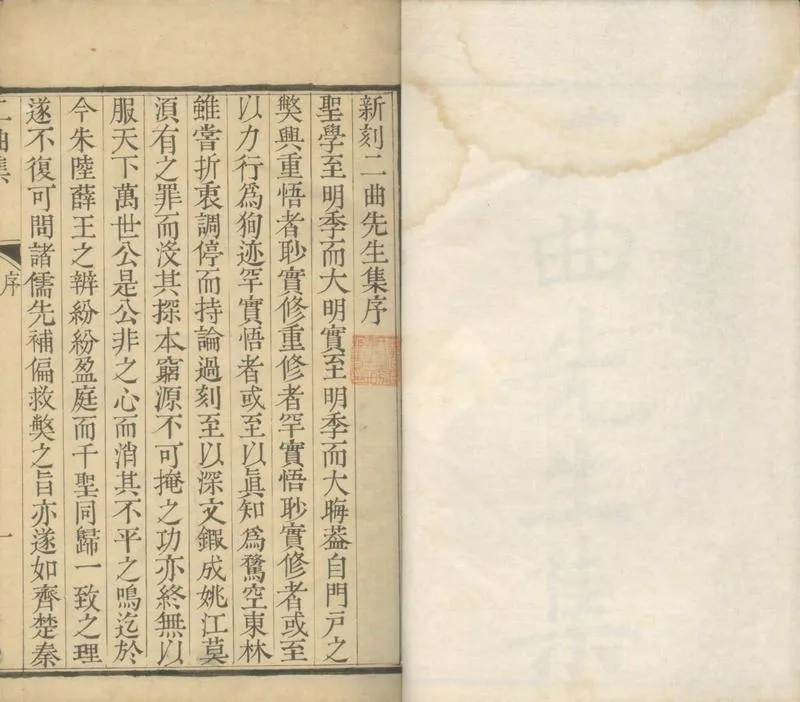 新刻二曲先生集序
聖學至明季而大明實至明季而大晦葢自門戸之
獘興重悟者眇實修重修者罕實悟眇實修者或至
以力行爲狥迹罕實悟者或至以眞知爲騖空東林
雖嘗折衷調停而持論過刻至以深文鍜成姚江莫
湏有之罪而沒其探本窮源不可掩之功亦終無以
服天下萬世公是公非之心而消其不平之鳴迄於
今朱陸薛王之辨紛紛盈庭而千聖同歸一致之理
遂不復可問諸儒先補偏救獘之旨亦遂如齊楚秦
二曲集
序
一